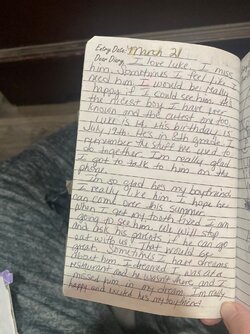 Entry Date: March 21
Dear Diary, I love Luke. I miss
him. Sometimes I feel like I
need him. I would be really
happy if I could see him. He's
the nicest boy I have ever
known and the cutest one too.
Luke is 14. His birthday is
July 19th. He's in 8th grade. I
remember the stuff we used to
do together. I'm really glad
I got to talk to him on the
phone.
I'm so glad he's my boyfriend.
I really like him. I hope he
can come over this summer.
When I get my tooth fixed I am
going to see him. We will stop
and ask his parents if he can go
eat with us. That would be
great. Sometimes I have dreams
about him. I dreamed I was at a
restaurant and he wasn't there, and I
missed him in my dream. I'm really
happy and would his my boyfriend.